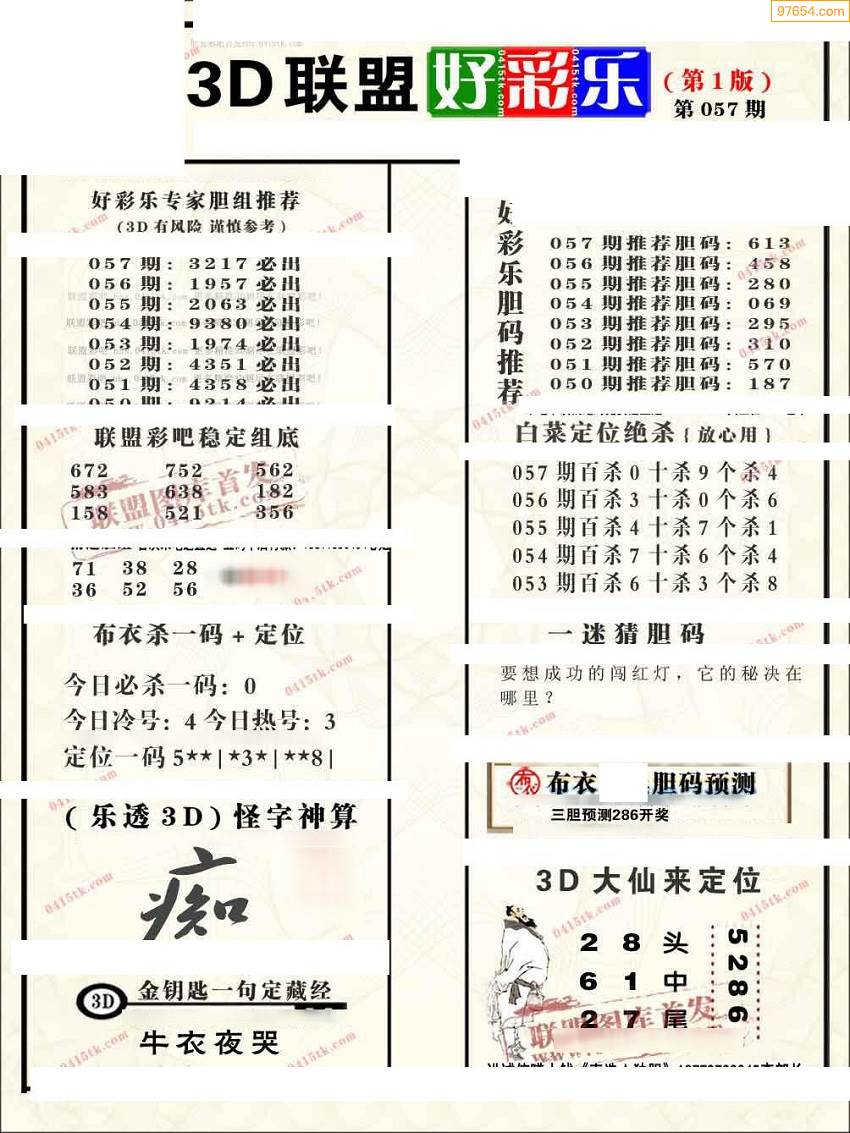 97654.com
3D联盟 好彩乐 (第1版)
第057期
好彩乐专家胆组推荐
(3D有风险 谨慎参考)
057期: 3217必出
056期: 1957必出
055期: 2063必出
054期: 9380必出
053期: 1974必出
052期: 4351必出
051期: 4358必出
050期: 9214必出
联盟彩吧稳定组底
672 752 562
583 638 182
158 521 356
71 38 28
36 52 56
布衣杀一码+定位
今日必杀一码: 0
今日冷号: 4 今日热号: 3
定位一码5**|*3*|**8|
(乐透3D)怪字神算
痴
3D 金钥匙一句定藏经
牛衣夜哭
好彩乐胆码推荐
057期推荐胆码: 613
056期推荐胆码: 458
055期推荐胆码: 280
054期推荐胆码: 069
053期推荐胆码: 295
052期推荐胆码: 310
051期推荐胆码: 570
050期推荐胆码: 187
白菜定位绝杀{放心用}
057期百杀0十杀9个杀4
056期百杀3十杀0个杀6
055期百杀4十杀7个杀1
054期百杀7十杀6个杀4
053期百杀6十杀3个杀8
一迷猜胆码
要想成功的闯红灯，它的秘决在
哪里？
布衣 胆码预测
三胆预测286开奖
3D大仙来定位
2 8 头
6 1 中
2 7 尾
5286
联盟图库首发
www.0415tk.com